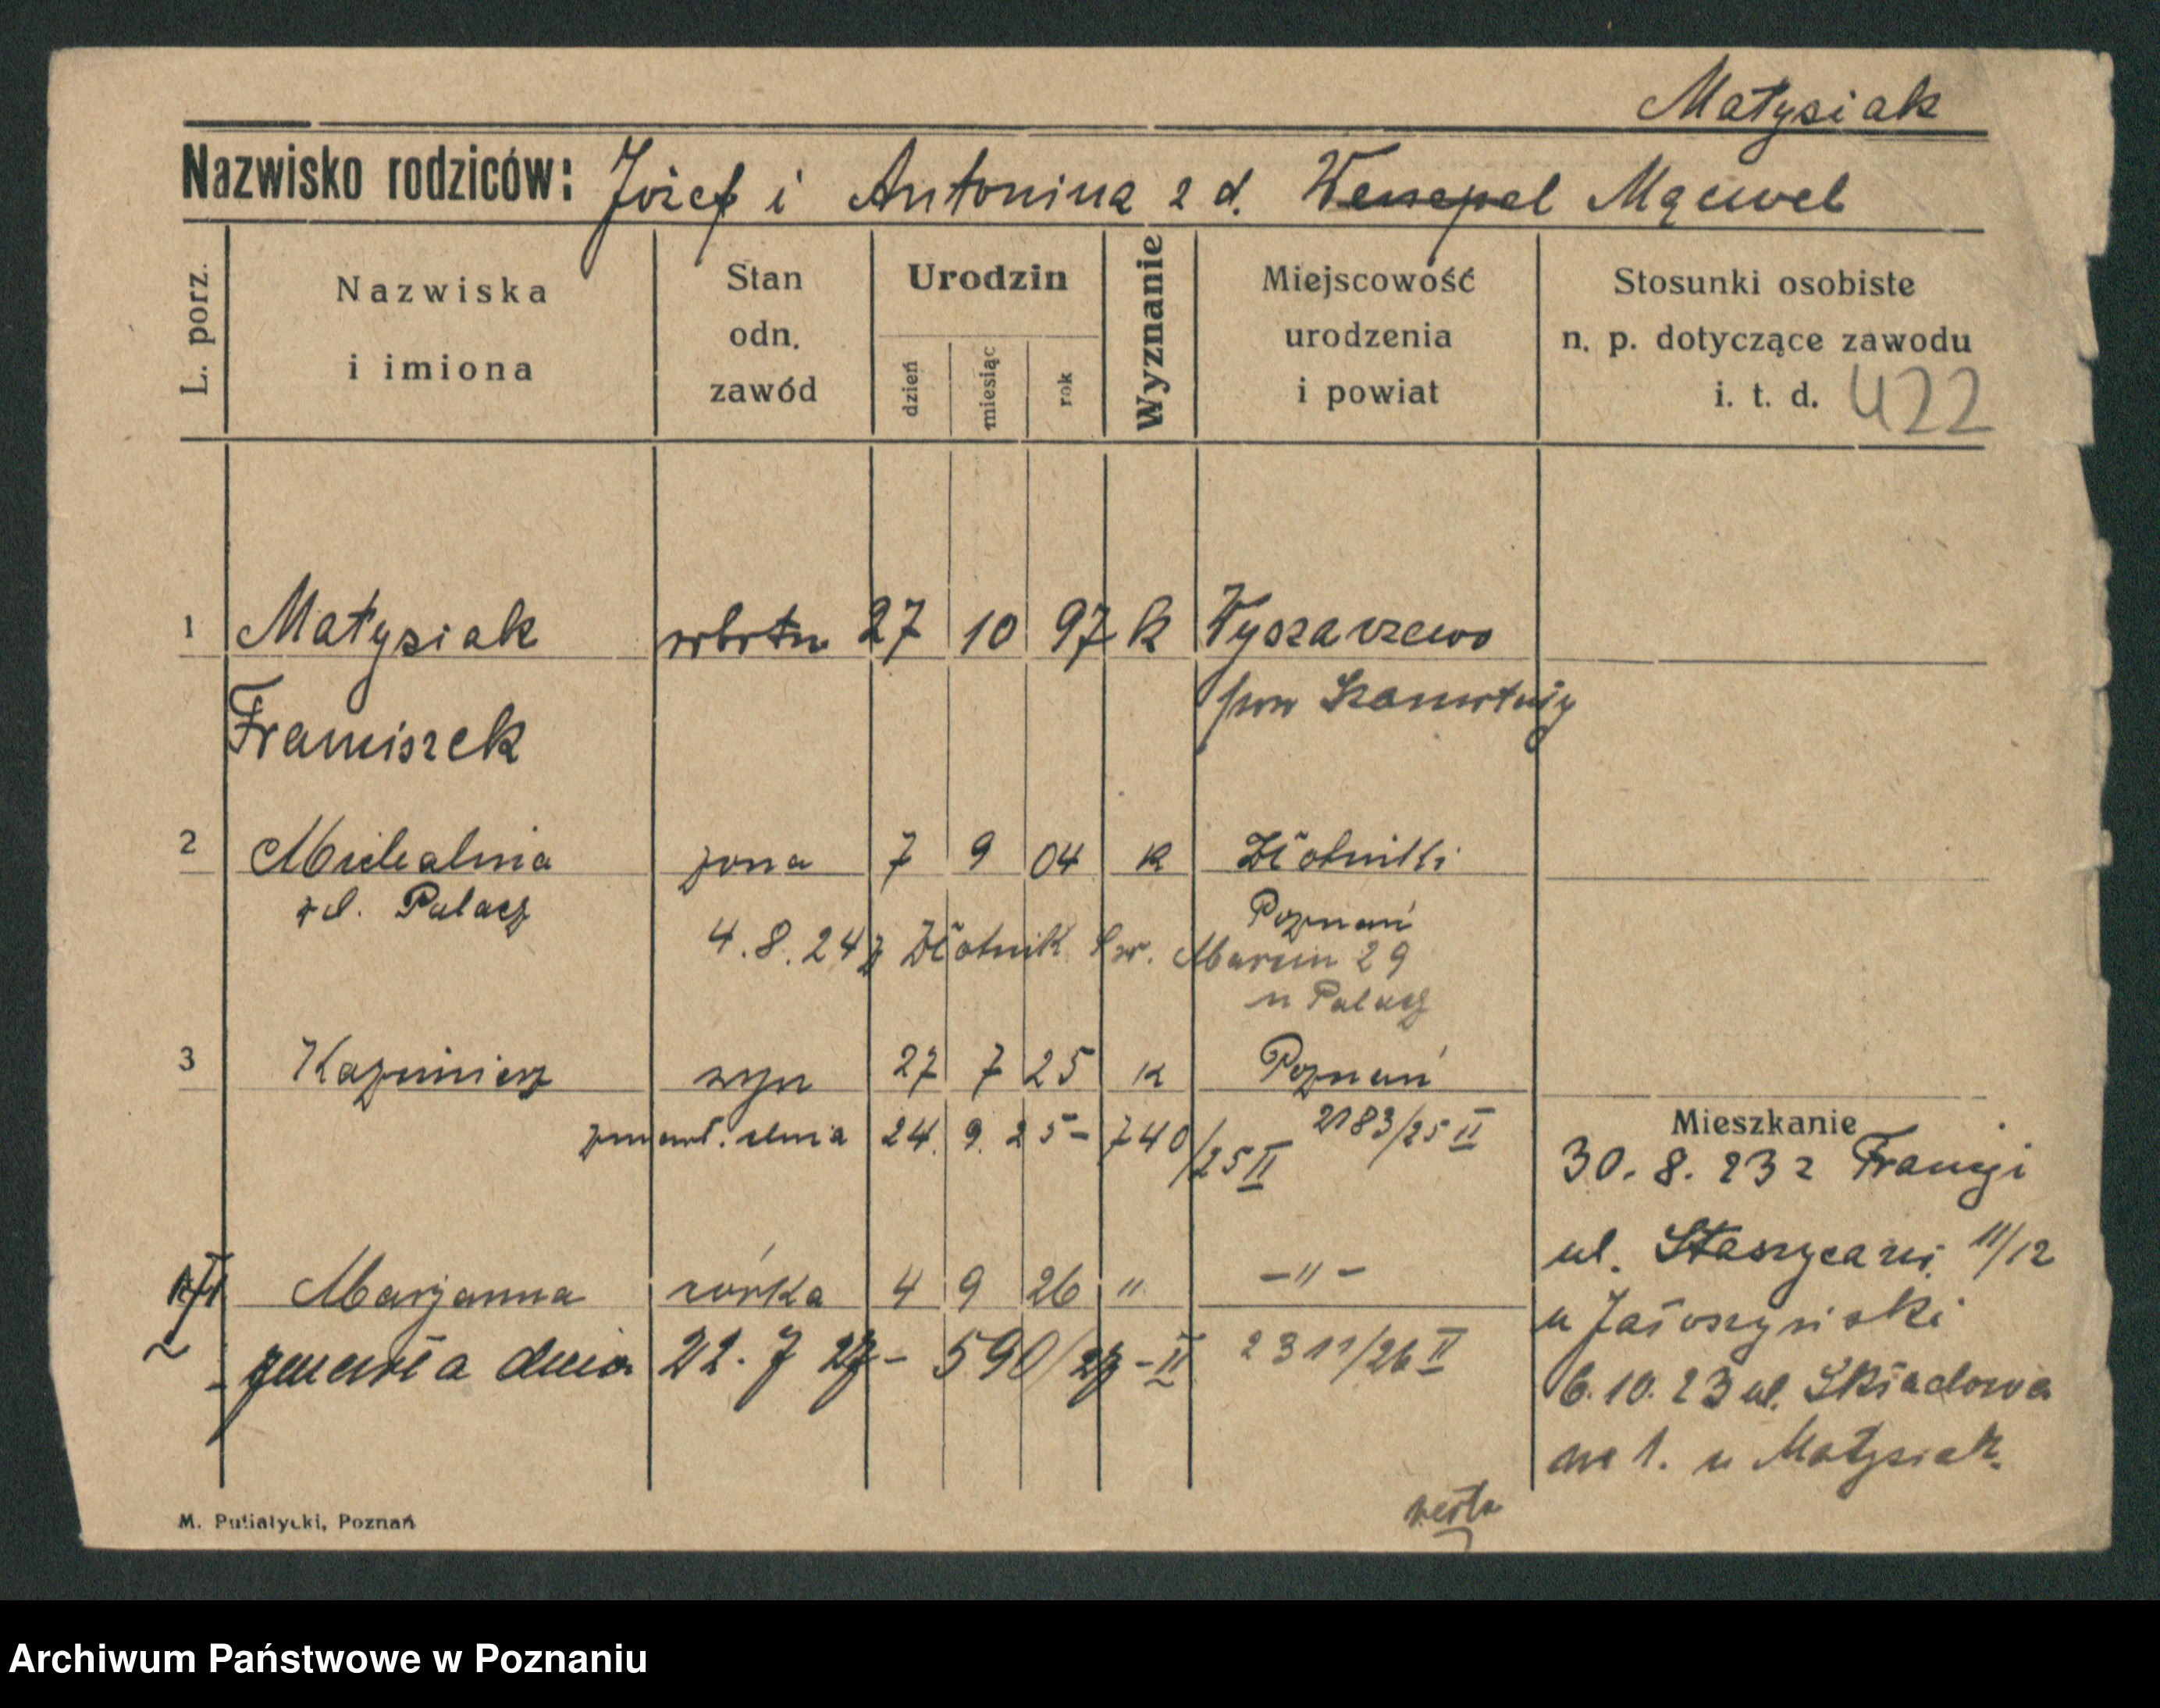 Matysiak
Nazwisko rodziców: Józef i Antonina z d.
L. porz.
Nazwiska i imiona
Stan odn. zawód
Urodzin
dzień
miesiąc
rok
Wyznanie
Miejscowość urodzenia i powiat
Stosunki osobiste n. p. dotyczące zawodu i. t. d. 422
1 Matysiak 27 10 97 k
Franciszek
2 Michalina żona 7 9 04 k Złotniki
z d. Palacz Poznań
4.8.24 z Złotnik Św. Marcin 29
u Palacz
3 Kazimierz syn 27 7 25 k Poznań
zmarł dnia 24. 9. 25 - 740/25 II 2183/25 II
Mieszkanie
30. 8. 23 z Francji
ul. 11/12
Marjanna córka 4 9 26 " -"-
zmarła dnia 22. 7 27 - 590/27 - II 2311/26 II
6.10.23 ul. Składowa
u Matysiak
M. Putiatycki, Poznań
Archiwum Państwowe w Poznaniu